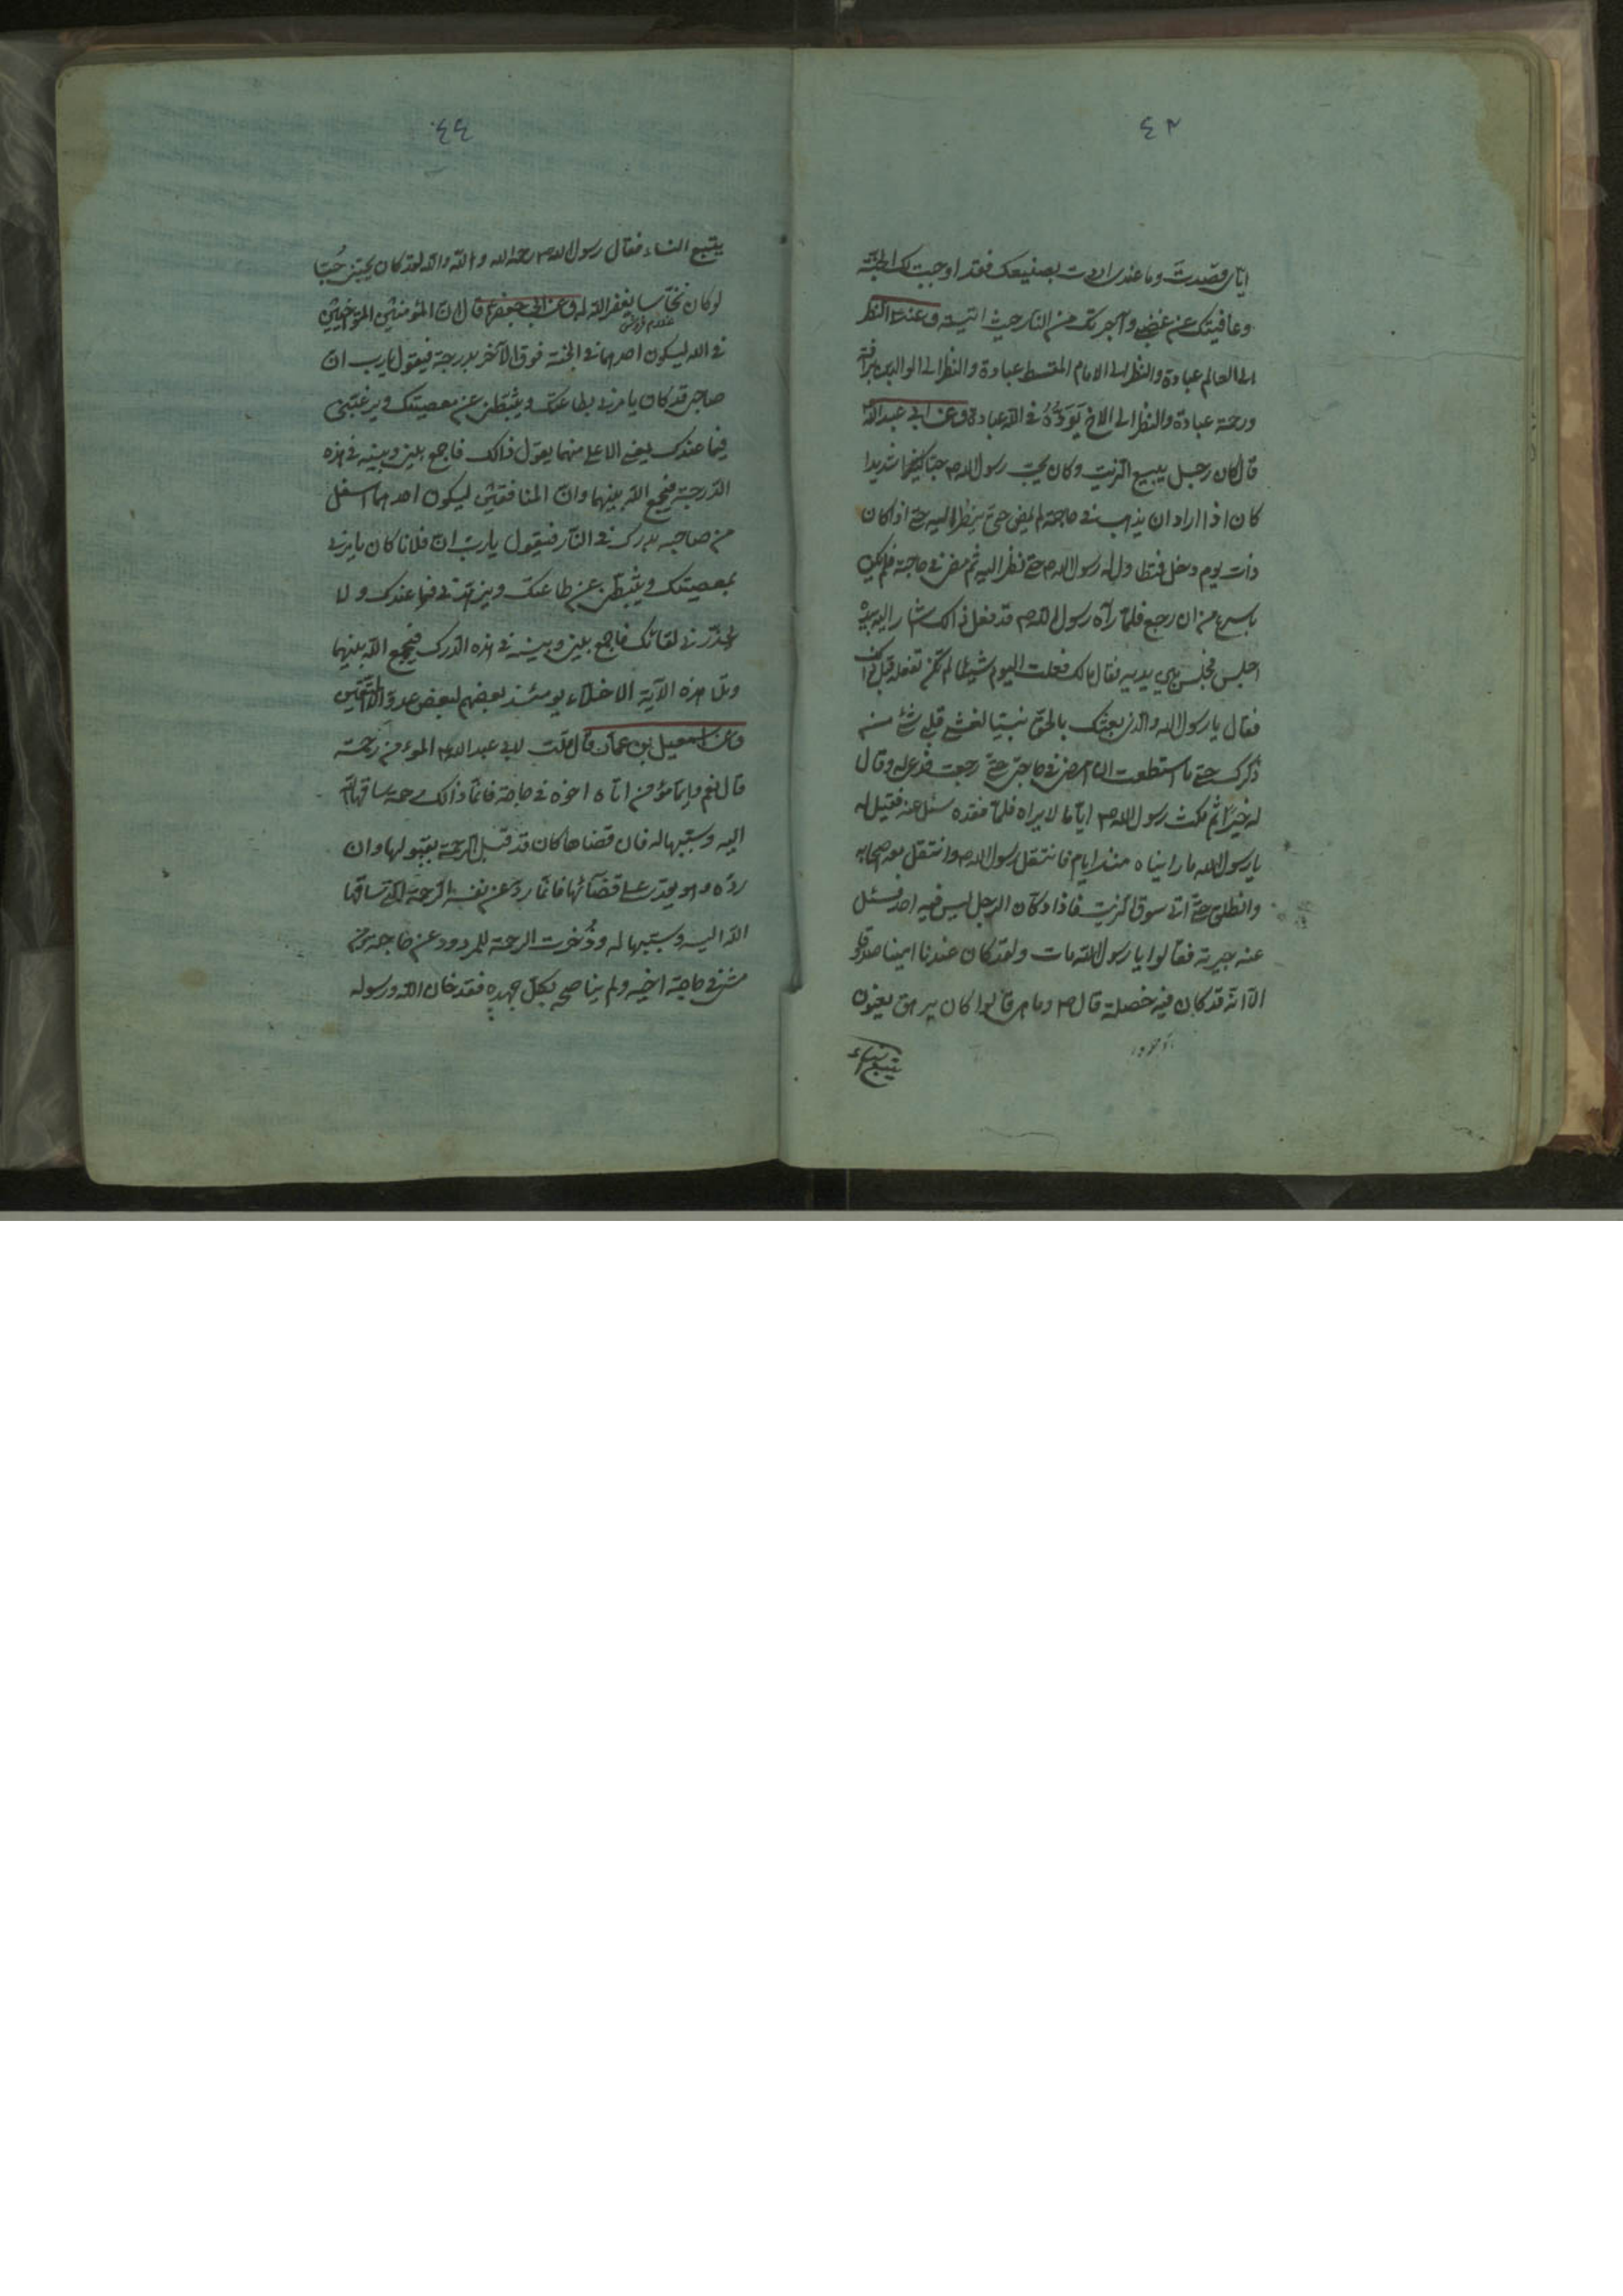 ٤٣
ایای قصدت وما عندی اردت بصنیعک فقد اوجبت لک الجنة
وعافیتک عن غضبی وآجرتک من النار حیث اتیته وعنه النظر
الی العالم عبادة والنظر الی الامام المقسط عبادة والنظر الی الوالدین برأفة
ورحمة عبادة والنظر الی الاخ تودّه فی الله عبادة وعن ابی عبدالله
قال کان رجل یبیع الزیت وکان یحب رسول الله ص حبا شدیدا
کان اذا اراد ان یذهب فی حاجة لم یمض حتی ینظر الیه حتی اذا کان
ذات یوم دخل فتطاول له رسول الله ص حتی نظر الیه ثم مضی فی حاجته فلم یکن
باسرع من ان رجع فلما رآه رسول الله ص قد فعل ذالک اشار الیه بیده
اجلس فجلس بین یدیه فقال مالک فعلت الیوم شیئا لم تکن تفعله قبل ذالک
فقال یا رسول الله والذی بعثک بالحق نبیا لغشی قلبی شئ من
ذکرک حتی ما استطعت ان امضی فی حاجتی حتی رجعت فدعی له وقال
له خیرا ثم مکث رسول الله ص ایاما لا یراه فلما فقده سئل عنه فقیل له
یا رسول الله ما رایناه منذ ایام فانتقل رسول الله وانتقل معه اصحابه
وانطلق حتی اتی سوق الزیت فاذا دکان الرجل لیس فیه احد فسئل
عنه جیرته فقالوا یا رسول الله مات ولقد کان عندنا امینا صدوقا
الّا انه قد کان فیه خصلة قال ص وما هی قالوا کان یرهق یعنون
یتبع النساء
٤٤
یتبع النساء فقال رسول الله ص رحمه الله والله لقد کان یحبنی حُبّا
لو کان نخّاسا یغفر الله له وعن ابی جعفر ع قال ان المؤمنین المتواخیین
فی الله لیکون احدهما فی الجنة فوق الآخر بدرجة فیقول یا رب ان
صاحبی قد کان یامرنی بطاعتک ویثبطنی عن معصیتک ویرغبنی
فیما عندک یعنی الاعلی منهما یقول ذالک فاجمع بینی وبینه فی هذه
الدرجة فیجمع الله بینهما وان المنافقین لیکون احدهما اسفل
من صاحبه بدرک فی النار فیقول یا رب ان فلانا کان یامرنی
بمعصیتک ویثبطنی عن طاعتک ویزهدنی فیما عندک ولا
یحذرنی لقائک فاجمع بینی وبینه فی هذه الدرک فیجمع الله بینهما
وتلا هذه الآیة الاخلاء یومئذ بعضهم لبعض عدو الا المتقین
وعن اسمعیل بن عمار قال قلت لابی عبد الله ع المؤمن رحمة
قال نعم وایما مؤمن اتاه اخوه فی حاجة فانما ذالک رحمة ساقها الله
الیه وسببها له فان قضاها کان قد قبل الرحمة بقبولها وان
ردّه وهو یقدر علی قضائها فانما ردّ عن نفسه الرحمة التی ساقها
الله الیه وسببها له وذُخرت الرحمة للمردود عن حاجته ومن
مشی فی حاجة اخیه ولم یناصحه بکل جهده فقد خان الله ورسوله